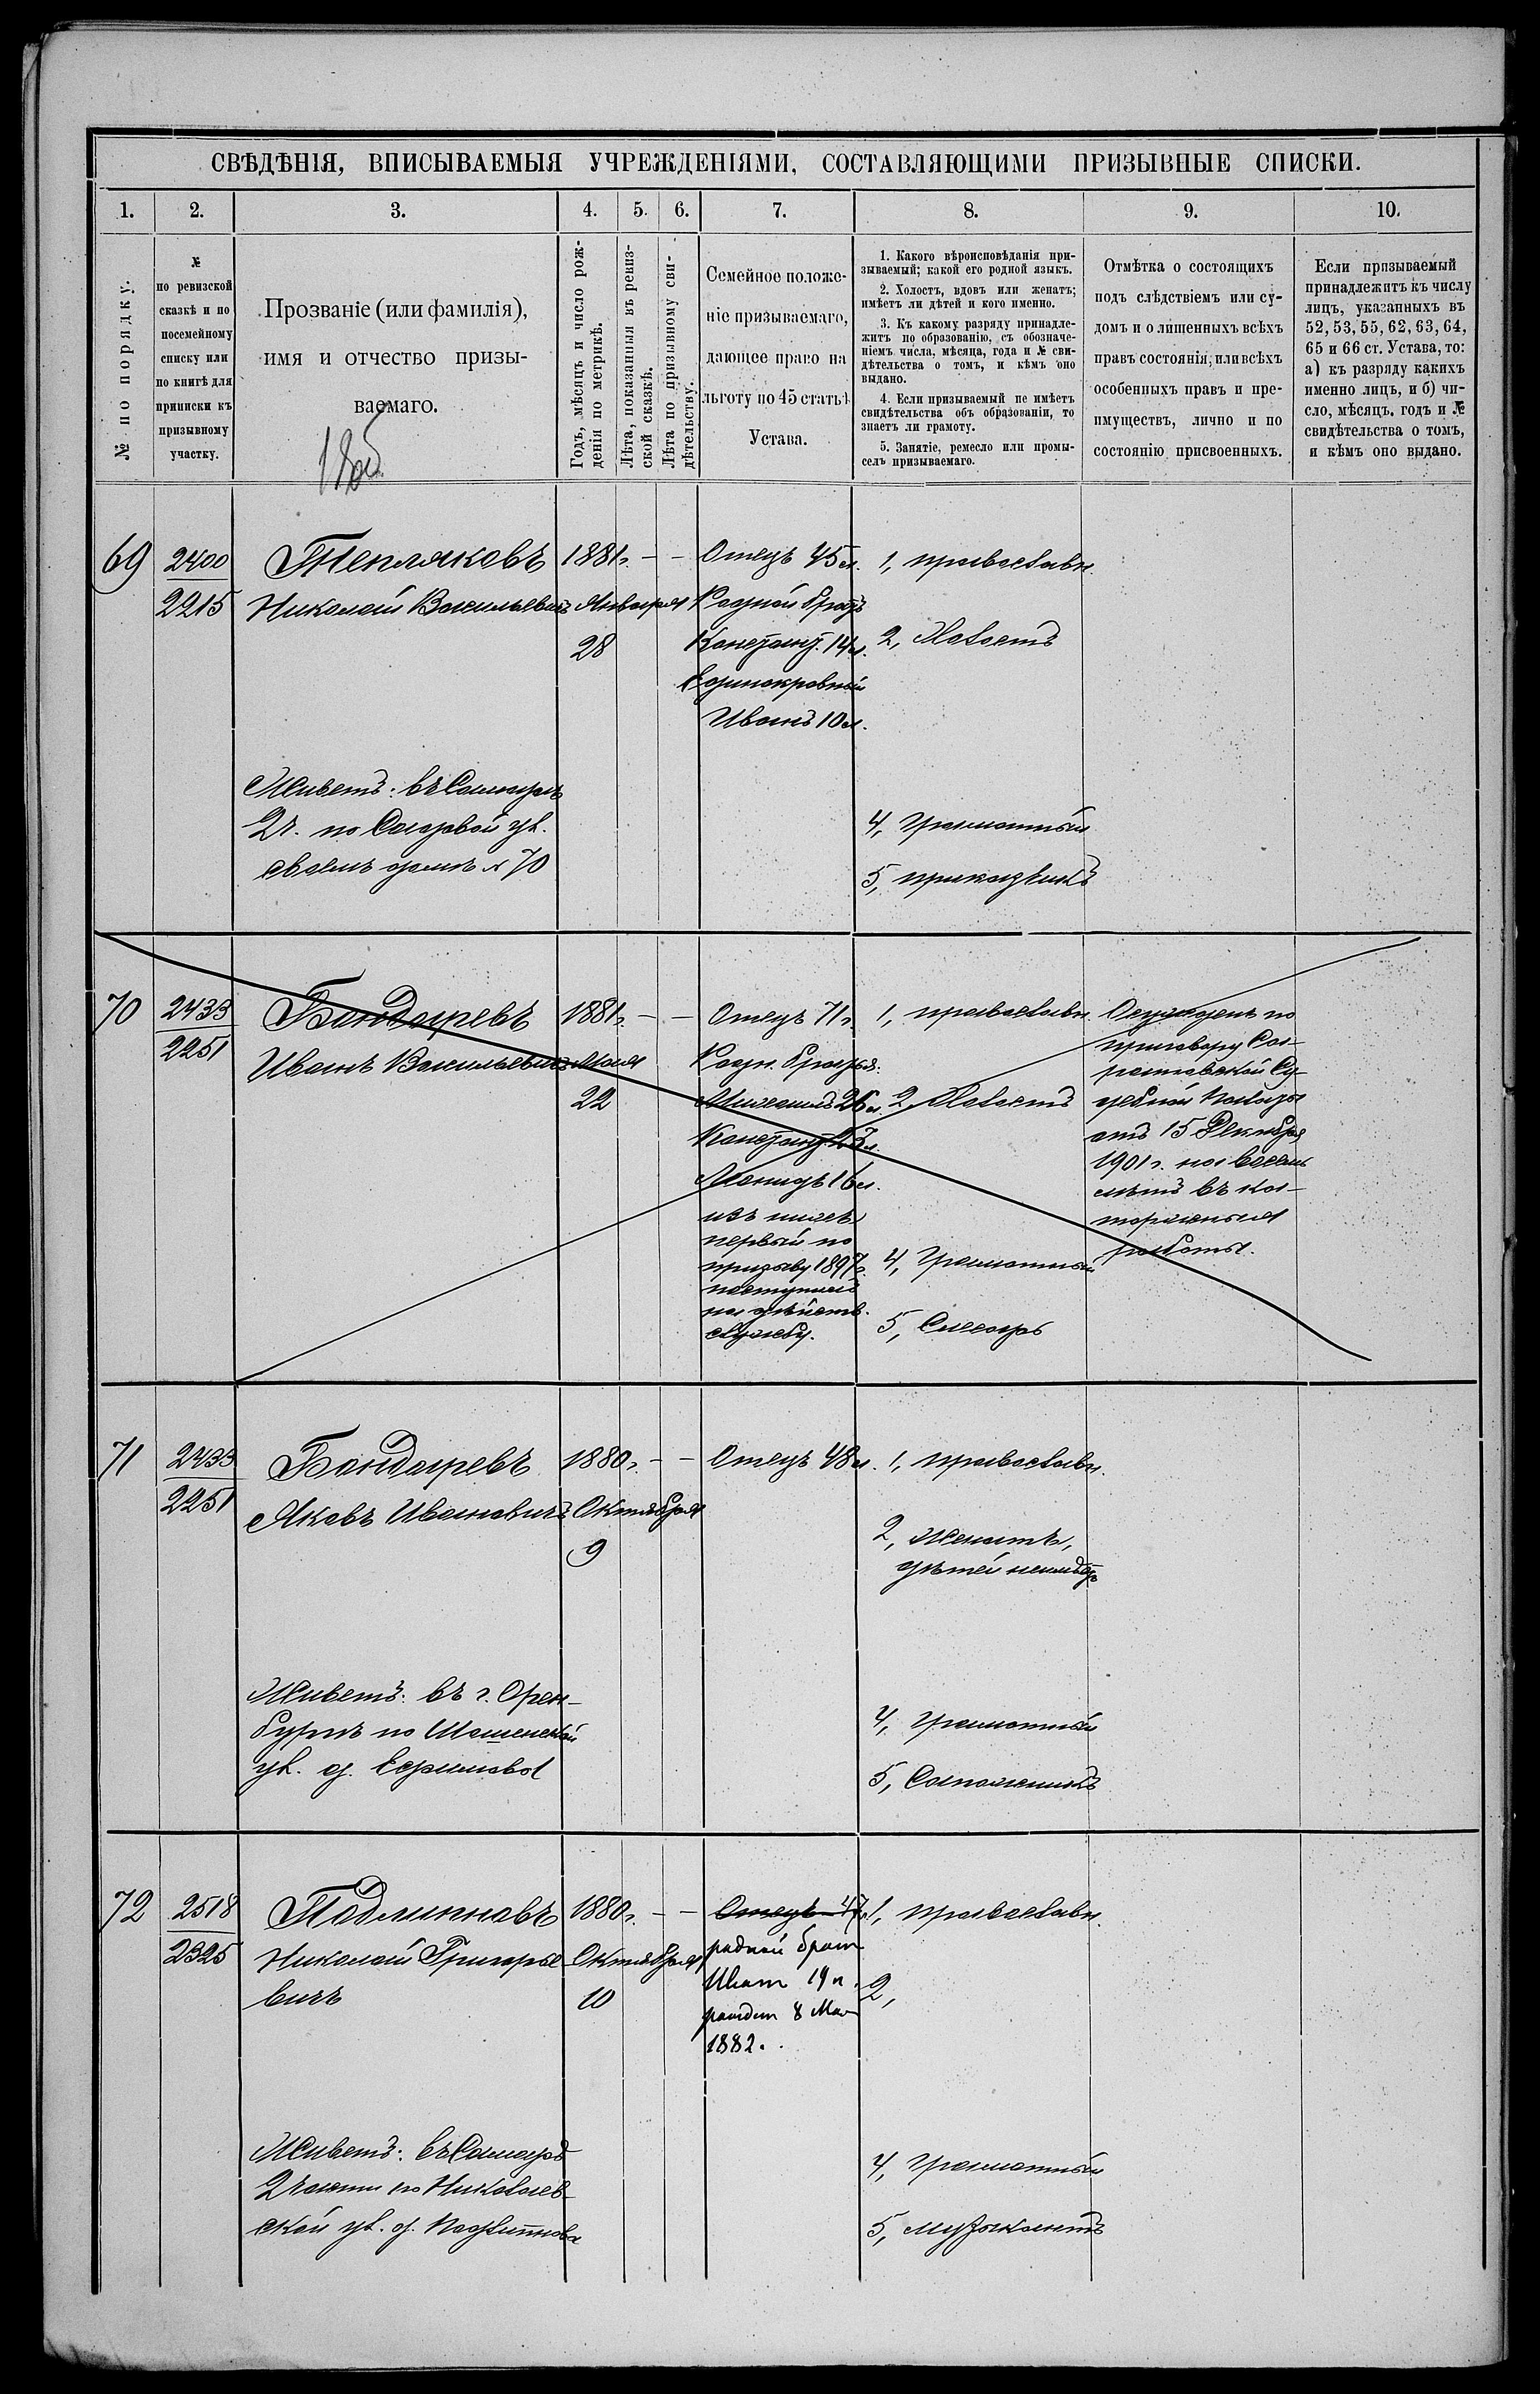 СВѢДѢНІЯ, ВПИСЫВАЕМЫЯ УЧРЕЖДЕНІЯМИ, СОСТАВЛЯЮЩИМИ ПРИЗЫВНЫЕ СПИСКИ.
1. 2. 3. 4. 5. 6. 7. 8. 9. 10.
№ по порядку.
№
по ревизской
сказкѣ и по
посемейному
списку или
по книгѣ для
приписки къ
призывному
участку.
Прозваніе (или фамилія),
имя и отчество призы-
ваемаго.
Годъ, мѣсяцъ и число рож-
денія по метрикѣ.
Лѣта, показанныя въ ревиз-
ской сказкѣ.
Лѣта по призывному сви-
дѣтельству.
Семейное положе-
ніе призываемаго,
дающее право на
льготу по 45 статьѣ
Устава.
1. Какого вѣроисповѣданія при-
зываемый; какой его родной языкъ.
2. Холостъ, вдовъ или женатъ;
имѣетъ ли дѣтей и кого именно.
3. Къ какому разряду принадле-
житъ по образованію, съ обозначе-
ніемъ числа, мѣсяца, года и № сви-
дѣтельства о томъ, и кѣмъ оно
выдано.
4. Если призываемый не имѣетъ
свидѣтельства объ образованіи, то
знаетъ ли грамоту.
5. Занятіе, ремесло или промы-
селъ призываемаго.
Отмѣтка о состоящихъ
подъ слѣдствіемъ или су-
домъ и о лишенныхъ всѣхъ
правъ состоянія, или всѣхъ
особенныхъ правъ и пре-
имуществъ, лично и по
состоянію присвоенныхъ.
Если призываемый
принадлежитъ къ числу
лицъ, указанныхъ въ
52, 53, 55, 62, 63, 64,
65 и 66 ст. Устава, то:
а) къ разряду какихъ
именно лицъ, и б) чи-
сло, мѣсяцъ, годъ и №
свидѣтельства о томъ,
и кѣмъ оно выдано.
69
2400
2215
Тепляковъ
Николай Васильевичъ
1881 г. – –
Января
28
Отецъ 45 л.
Родной братъ
Констант. 14 л.
Единокровный
Иванъ 10 л.
1, православн.
2, Холостъ
4, Грамотный
5, прикащикъ
Живетъ: въ Самарѣ
2 ч. по Садовой ул.
своемъ домѣ № 70
70
2433
2251
Бондаревъ
Иванъ Васильевичъ
1881 г. – –
Мая
22
Отецъ 71 г.
Родн. братья:
Михаилъ 26 л.
Констант. 23 л.
Леонидъ 16 л.
изъ нихъ
первый по
призыву 1897 г.
поступилъ
на дѣйств.
службу.
1, православн.
2, Холостъ
4, Грамотный
5, Слесарь
Осужденъ по
приговору Са-
ратовской Су-
дебной Палаты
отъ 15 Декабря
1901 г. на восемь
лѣтъ въ ка-
торжныя
работы.
71
2433
2251
Бондаревъ
Яковъ Ивановичъ
1880 г. – –
Октября
9
Отецъ 48 л.
1, православн.
2, Женатъ,
дѣтей неимѣетъ
4, Грамотный
5, Сапожникъ
Живетъ: въ г. Орен-
бургѣ по
ул. д. Ефимова
72
2518
2325
Подлипновъ
Николай Григорье
вичъ
1880 г. – –
Октября
10
Отецъ 47 л.
родной брат
Иван 19 л.
рожден 8 Мая
1882.
1, православн.
2,
4, Грамотный
5, музыкантъ
Живетъ: въ Самарѣ
2 части по Николаев-
ской ул. д. Подлипнова